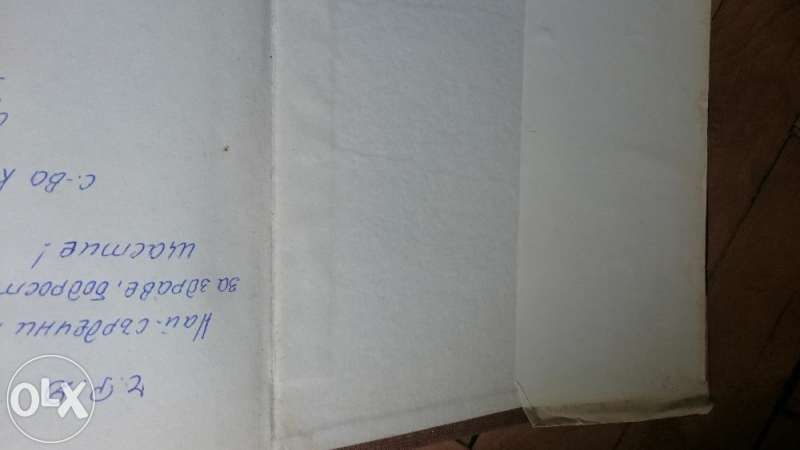 Ч. Р. Д.
Най-сърдечни
за здраве, бодрост
щастие!
с-ва К
OLX